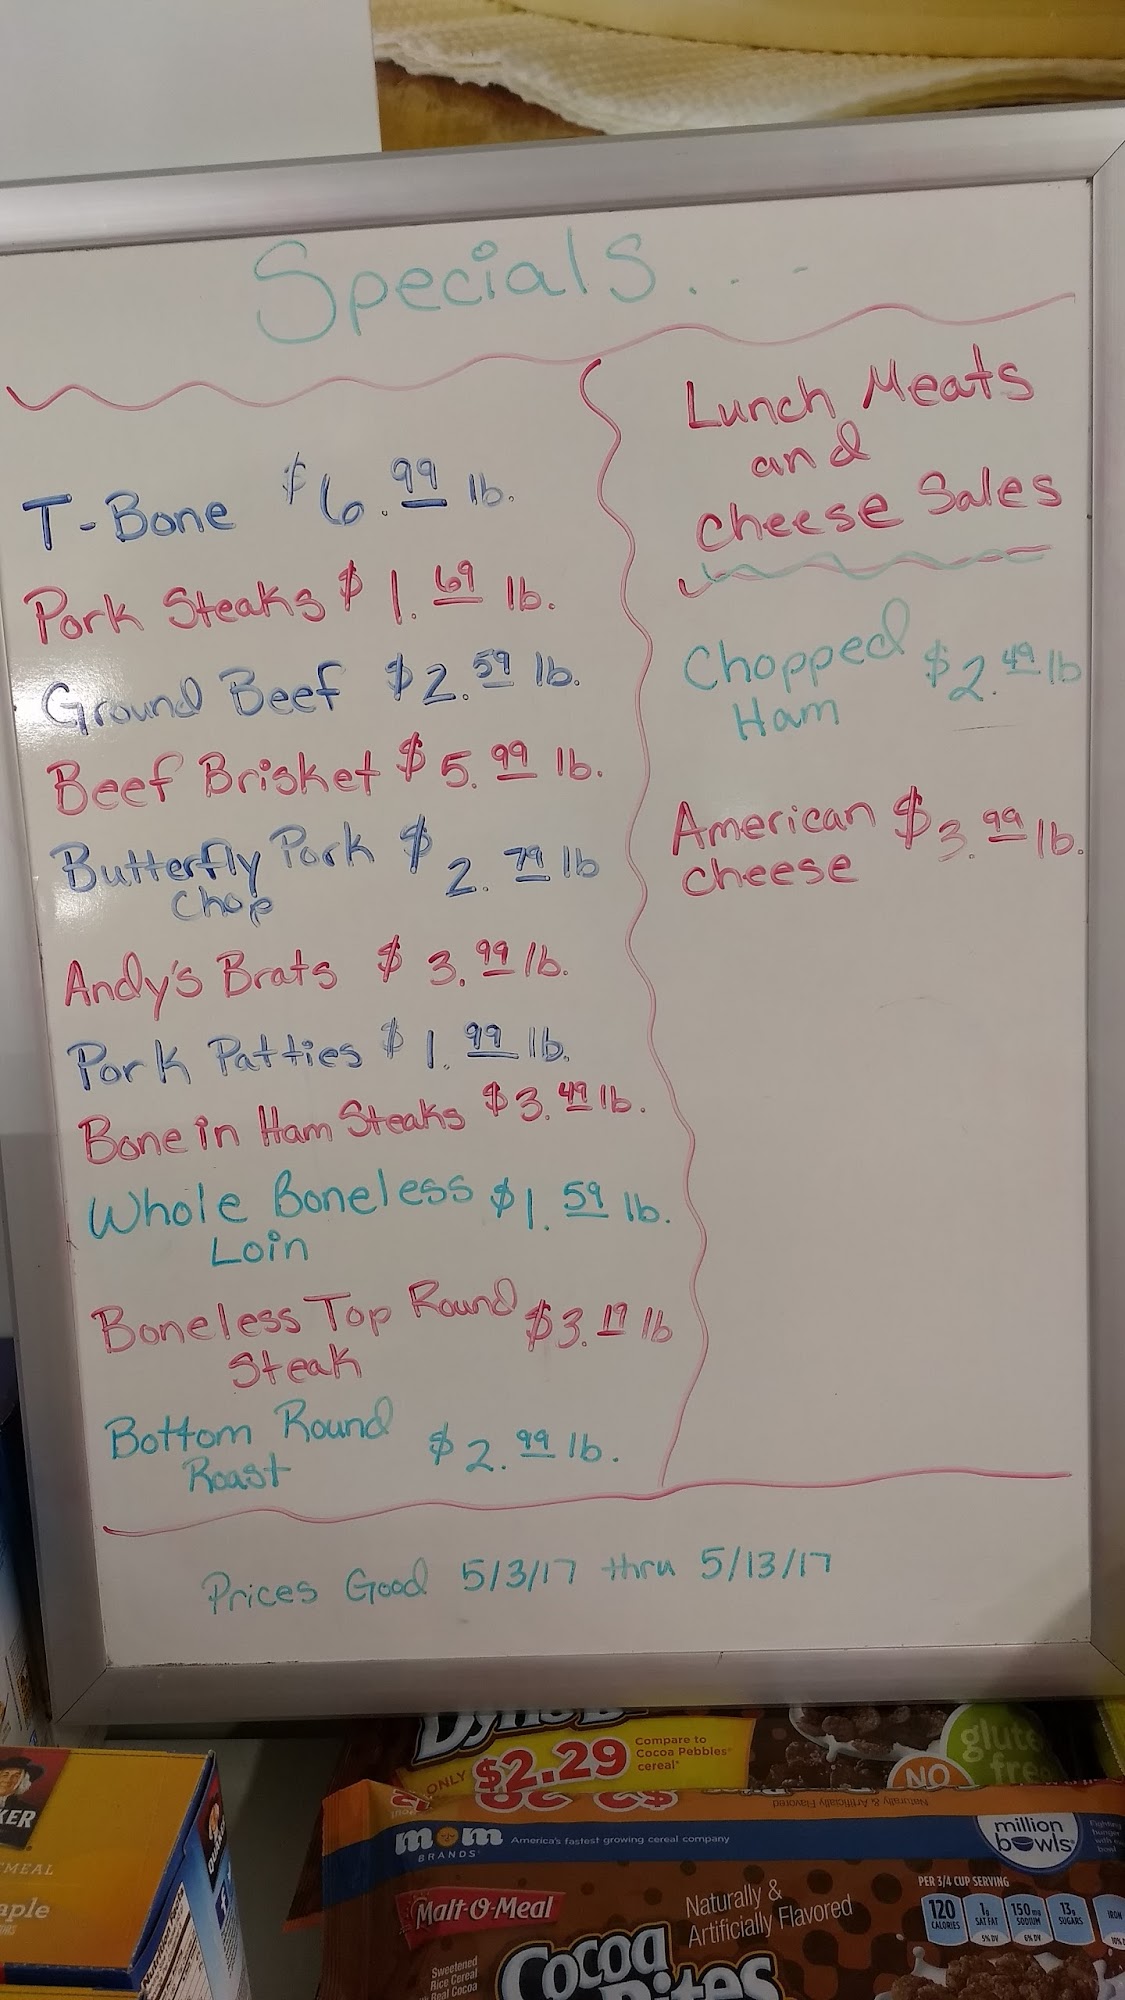 Specials...
T-Bone $6.99 lb.
Pork Steaks $1.69 lb.
Ground Beef $2.59 lb.
Beef Brisket $5.99 lb.
Butterfly Pork $2.79 lb
Chop
Andy's Brats $3.99 lb.
Pork Patties $1.99 lb.
Bone in Ham Steaks $3.49 lb.
Whole Boneless $1.59 lb.
Loin
Boneless Top Round $3.19 lb
Steak
Bottom Round $2.99 lb.
Roast
Lunch Meats
and
Cheese Sales
Chopped $2.49 lb
Ham
American $3.99 lb.
cheese
Prices Good 5/3/17 thru 5/13/17
ONLY $2.29
Compare to
Cocoa Pebbles
cereal*
NO
glute
free
Naturally & Artificially Flavored
mom
BRANDS
America's fastest growing cereal company
million
bowls
Malt-O-Meal
Naturally &
Artificially Flavored
PER 3/4 CUP SERVING
120
CALORIES
1g
SAT FAT
5% DV
150mg
SODIUM
6% DV
13g
SUGARS
IRON
10%
Sweetened
Rice Cereal
Real Cocoa
Cocoa
KER
MEAL
aple